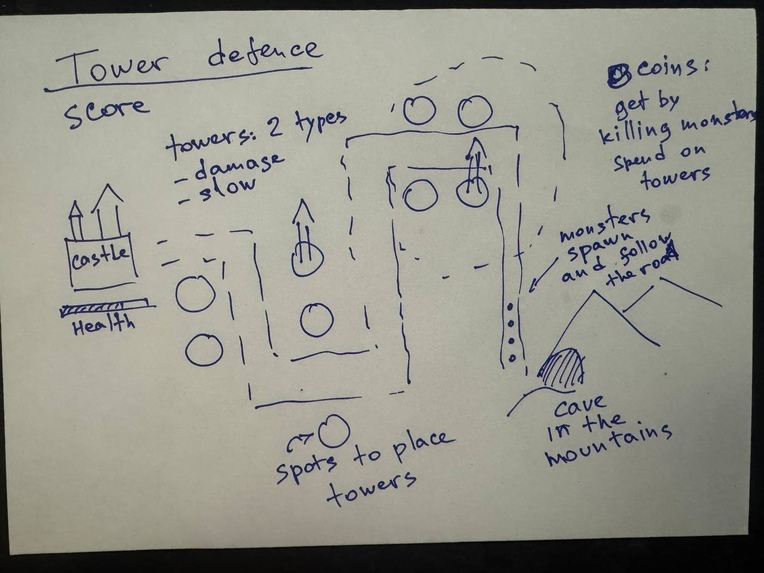 Tower defence
score
towers: 2 types
- damage
- slow
coins:
get by
killing monsters
spend on
towers
castle
Health
monsters
spawn
and follow
the road
cave
in the
mountains
spots to place
towers